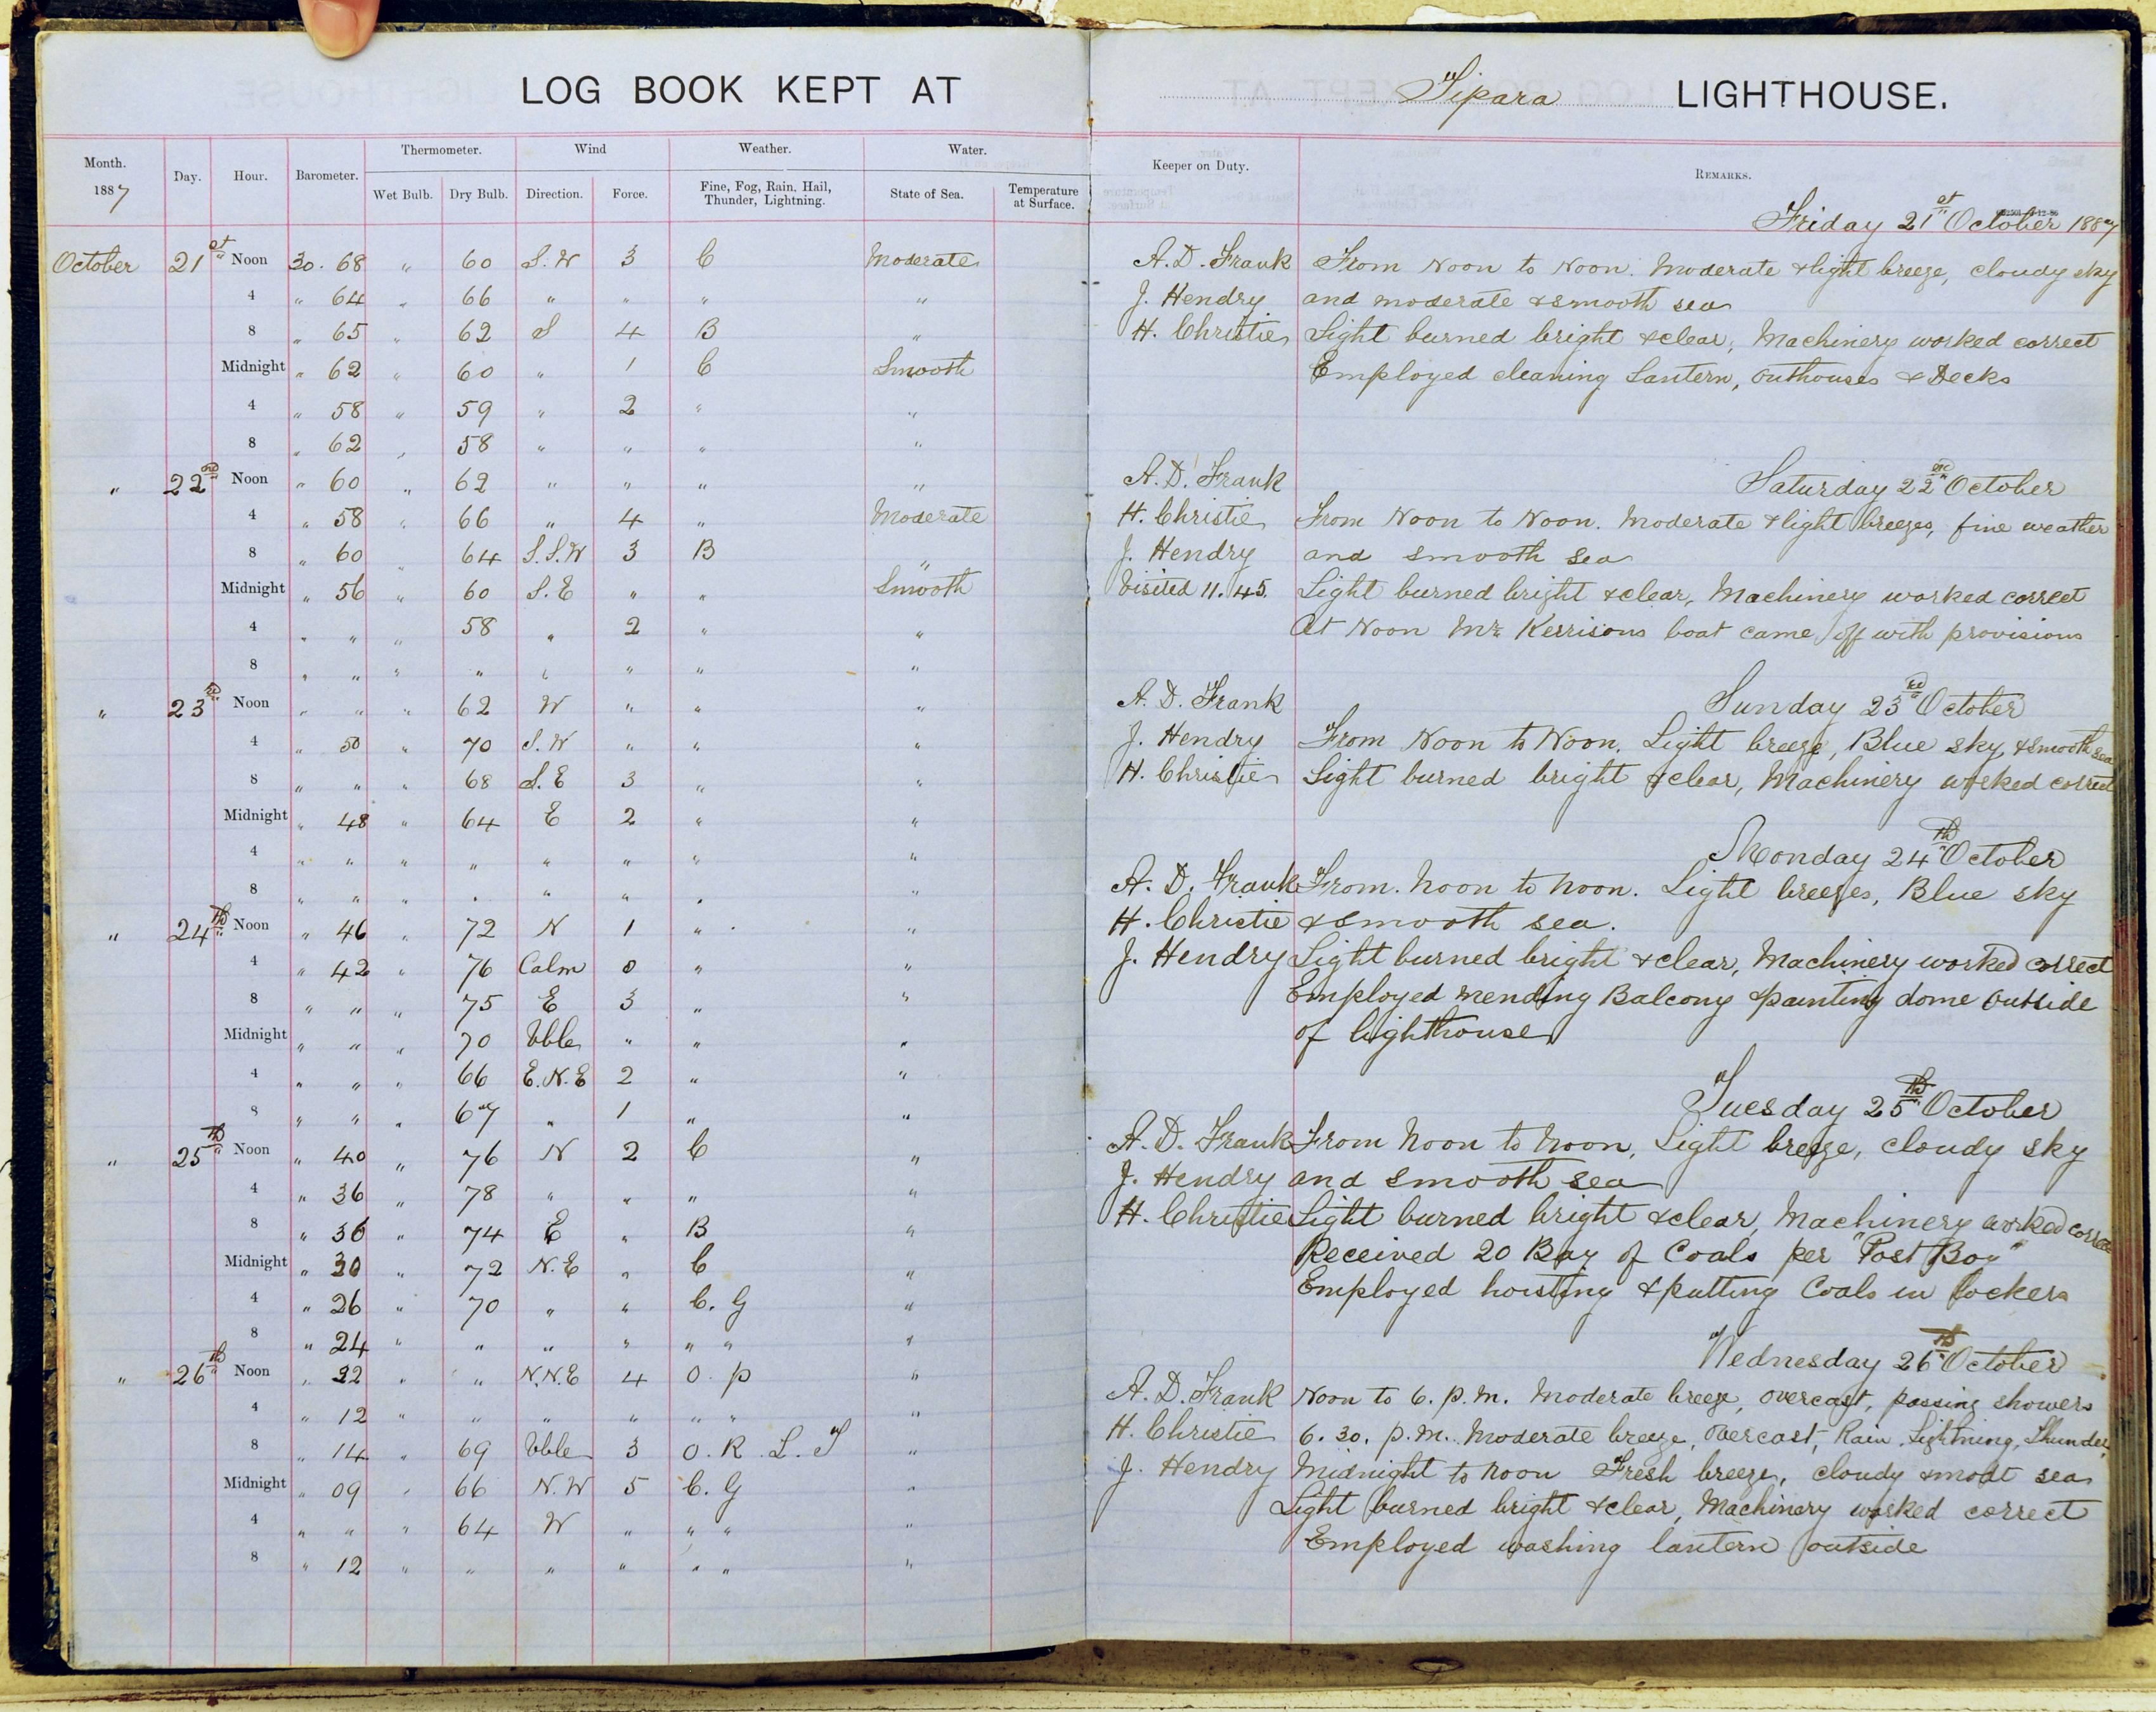 LOG BOOK KEPT AT
Month. Day. Hour. Barometer. Thermometer. Wind Weather. Water.
1887 Wet Bulb. Dry Bulb. Direction. Force. Fine, Fog, Rain, Hail, Thunder, Lightning. State of Sea. Temperature at Surface.
October 21st Noon 30. 68 " 60 S.W 3 C Moderate
4 " 64 " 66 " " " "
8 " 65 " 62 S 4 B "
Midnight " 62 " 60 " 1 C Smooth
4 " 58 " 59 " 2 " "
8 " 62 " 58 " " " "
" 22nd Noon " 60 " 62 " " " "
4 " 58 " 66 " 4 " Moderate
8 " 60 " 64 S.S.W 3 B "
Midnight " 56 " 60 S.E " " Smooth
4 " " " 58 " 2 " "
8 " " " " " " " "
" 23rd Noon " " " 62 W " " "
4 " 50 " 70 S.W " " "
8 " " " 68 S.E 3 " "
Midnight " 48 " 64 E 2 " "
4 " " " " " " " "
8 " " " " " " " "
" 24th Noon " 46 " 72 N 1 " "
4 " 42 " 76 Calm 0 " "
8 " " " 75 E 3 " "
Midnight " " " 70 Vble " " "
4 " " " 66 E.N.E 2 " "
8 " " " 67 " 1 " "
" 25th Noon " 40 " 76 N 2 C "
4 " 36 " 78 " " " "
8 " 36 " 74 E " B "
Midnight " 30 " 72 N.E " C "
4 " 26 " 70 " " C. G "
8 " 24 " " " " " " "
" 26th Noon " 22 " " N.N.E 4 O. p "
4 " 12 " " " " " " "
8 " 14 " 69 Vble 3 O. R. L. T "
Midnight " 09 " 66 N.W 5 C. G "
4 " " " 64 W " " " "
8 " 12 " " " " " " "
Tipara LIGHTHOUSE.
Keeper on Duty. REMARKS.
Friday 21st October 1887
A.D. Frank From Noon to Noon. Moderate & light breeze, cloudy sky
J. Hendry and moderate & smooth sea
H. Christie Light burned bright & clear, Machinery worked correct
Employed cleaning Lantern, outhouses & Decks
A.D. Frank Saturday 22nd October
H. Christie From Noon to Noon. Moderate & light breezes, fine weather
J. Hendry and smooth sea
Visited 11.45. Light burned bright & clear, Machinery worked correct
At Noon Mr Kerrisons boat came off with provisions
A. D. Frank Sunday 23rd October
J. Hendry From Noon to Noon. Light breeze, Blue sky, & smooth sea
H. Christie Light burned bright & clear, Machinery worked correct
Monday 24th October
A. D. Frank From Noon to Noon. Light breezes, Blue sky
H. Christie & smooth sea.
J. Hendry Light burned bright & clear, Machinery worked correct
Employed mending Balcony & painting dome outside
of lighthouse
Tuesday 25th October
A. D. Frank From Noon to Noon, Light breeze, cloudy sky
J. Hendry and smooth sea
H. Christie Light burned bright & clear, Machinery worked correct
Received 20 Bag of Coals per "Post Boy"
Employed hoisting & putting Coals in lockers
Wednesday 26th October
A. D. Frank Noon to 6. p.m. Moderate breeze, overcast, passing showers
H. Christie 6.30. p.m. Moderate breeze, overcast, Rain, Lightning, Thunder,
J. Hendry Midnight to Noon Fresh breeze, cloudy & modt sea
Light burned bright & clear, Machinery worked correct
Employed washing lantern outside